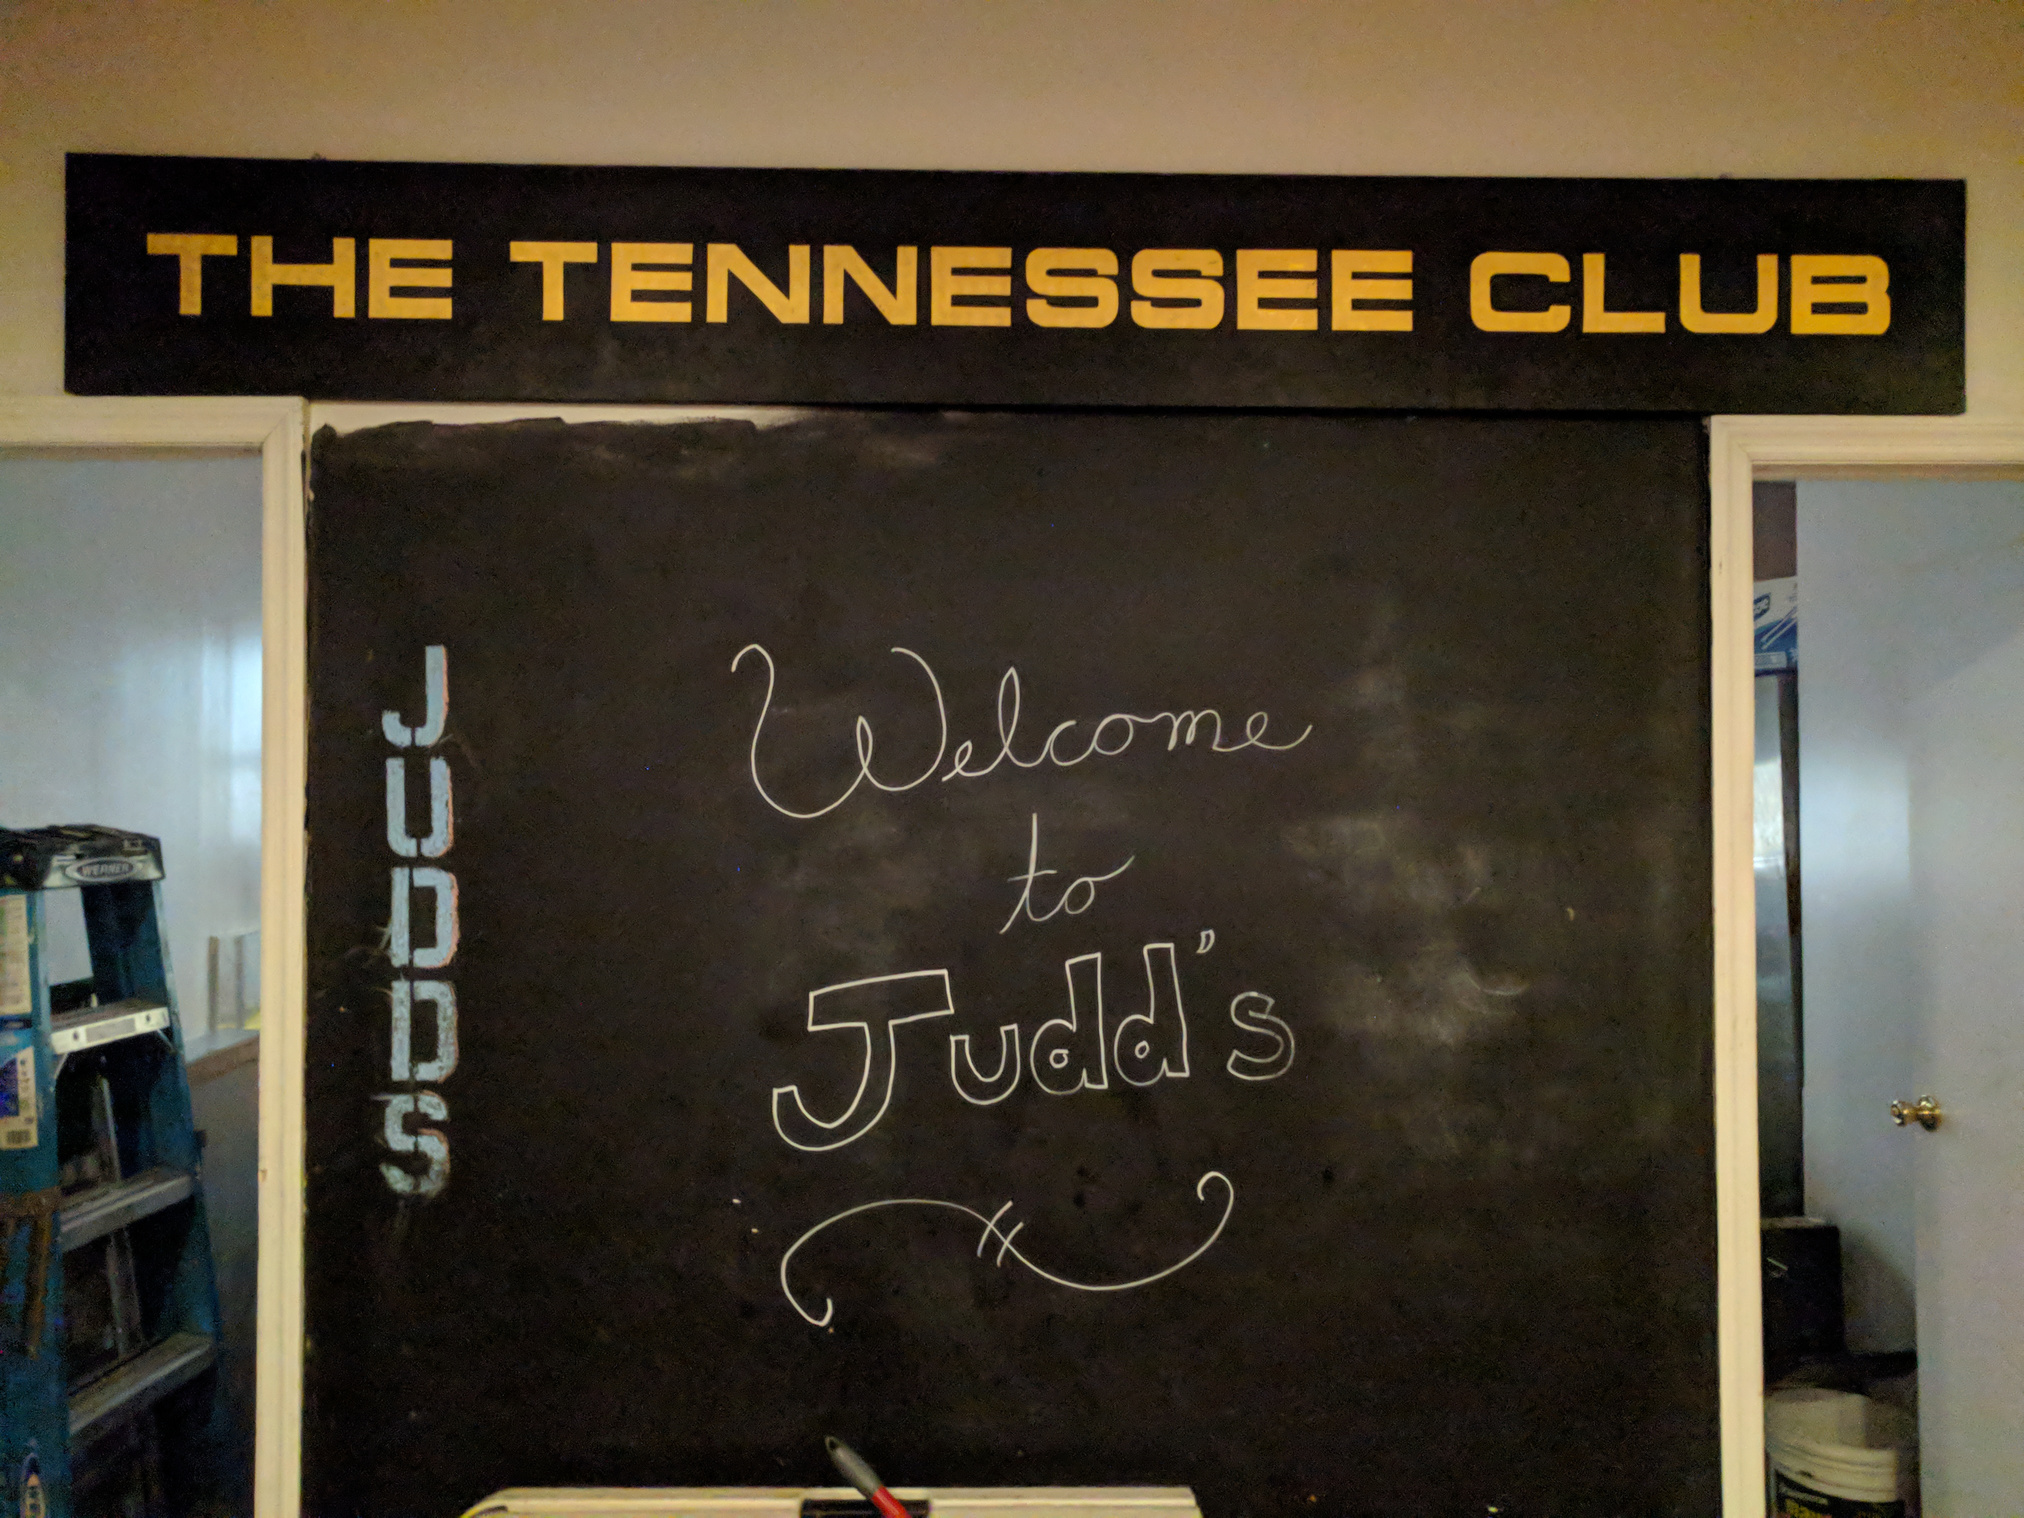 THE TENNESSEE CLUB
JUDDS
Welcome
to
Judd's
WERNER